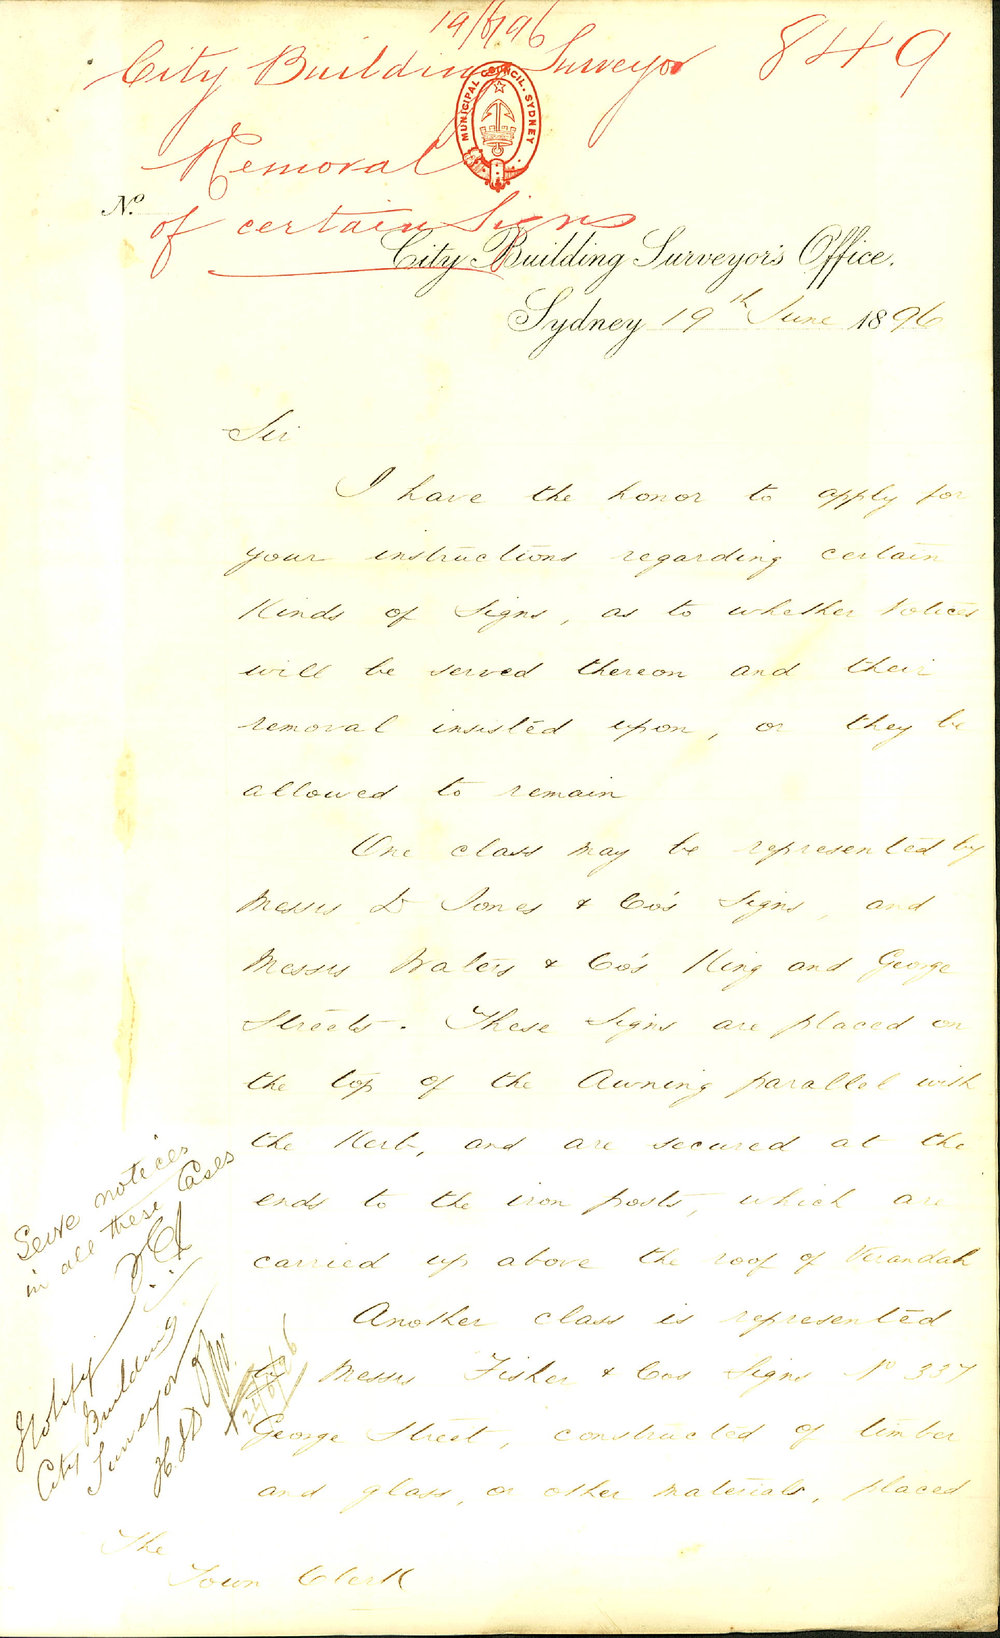 19/6/96
City Building Surveyor 849
MUNICIPAL COUNCIL. SYDNEY
Removal
No.
of certain Signs
City Building Surveyor's Office.
Sydney 19th June 1896
Sir
I have the honor to apply for
your instructions regarding certain
Kinds of Signs, as to whether Notices
will be served thereon and their
removal insisted upon, or they be
allowed to remain
One class may be represented by
Messrs D Jones & Co's Signs, and
Messrs Waters & Co's King and George
Streets. These Signs are placed on
the top of the Awning parallel with
the Kerb, and are secured at the
ends to the iron posts, which are
carried up above the roof of Verandah
Another class is represented
by Messrs Fisher & Cos Signs No 337
George Street, constructed of timber
and glass, or other materials, placed
The
Town Clerk
Serve notices
in all these Cases
Notify
City Building
Surveyor
24/6/96